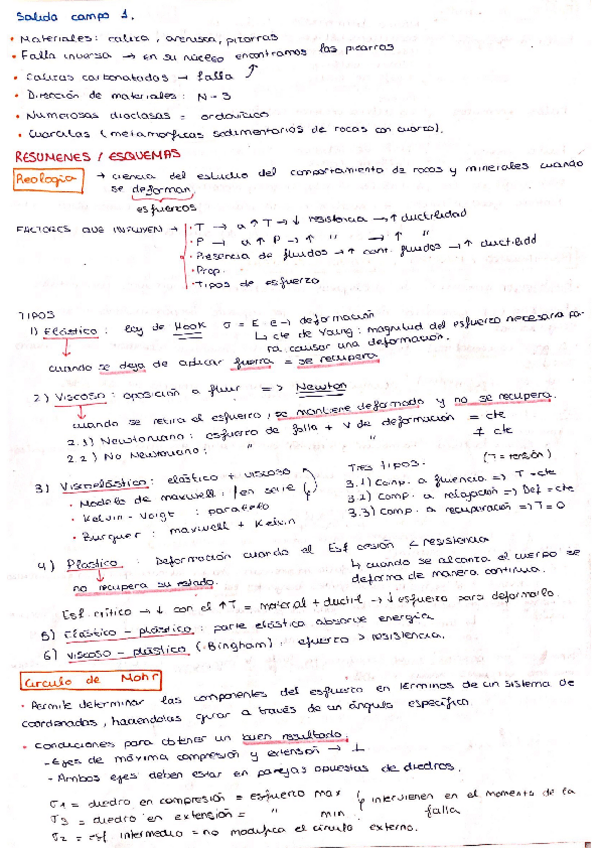 Salida campo 1.
• Materiales: caliza, arenisca, pizarras
• Falla inversa → en su núcleo encontramos las pizarras
• Calizas carbonatadas → falla ↗
• Dirección de materiales: N-S
• Numerosas diaclasas = ordovícico
• Cuarcitas (metamorficas sedimentarios de rocas con cuarzo).
RESUMENES / ESQUEMAS
Reologia → ciencia del estudio del comportamiento de rocas y minerales cuando
se deforman.
esfuerzos
FACTORES QUE INFLUYEN → · T → a ↑ T → ↓ resistencia → ↑ ductilidad
· P → a ↑ P → ↑ " → ↑ "
· Presencia de fluidos → ↑ cont. fluidos → ↑ ductilidd
· Prop.
· Tipos de esfuerzo
TIPOS
1) Elástico: ley de Hook σ = E e → deformación
↳ cte de Young: magnitud del esfuerzo necesaria pa-
ra causar una deformación.
cuando se deja de aplicar fuerza = se recupera
2) Viscoso: oposición a fluir => Newton
cuando se retira el esfuerzo, se mantiene deformado y no se recupera.
2.1) Newtoniano: esfuerzo de falla + V de deformación = cte
2.2) No Newtoniano: " " ≠ cte
3) Viscoelástico: elástico + viscoso
• Modelo de maxwell: en serie
• Kelvin-Voigt: paralelo
• Burguer: maxwell + Kelvin
Tres tipos. (T = tensión)
3.1) Comp. a fluencia => T = cte
3.2) Comp. a relajación => Def = cte
3.3) Comp. a recuperación => T = 0
4) Plástico: Deformación cuando el Esf cesión < resistencia
↳ cuando se alcanza el cuerpo se
deforma de manera continua.
no recupera su estado.
Esf. crítico → ↓ con el ↑ T = material + ductil → ↓ esfuerzo para deformarlo.
5) Elástico - plástico: parte elástica absorve energía
6) Viscoso - plástico (Bingham), esfuerzo > resistencia.
Circulo de Mohr
• Permite determinar las componentes del esfuerzo en términos de un sistema de
coordenadas, haciendolas girar a través de un ángulo específico.
• Condiciones para obtener un buen resultado.
- Ejes de máxima compresión y extensión → ⊥
- Ambos ejes deben estar en parejas opuestas de diedros.
σ1 = diedro en compresión = esfuerzo max
σ3 = diedro en extensión = " min
intervienen en el momento de la
falla
σ2 = esf intermedio = no modifica el círculo externo.